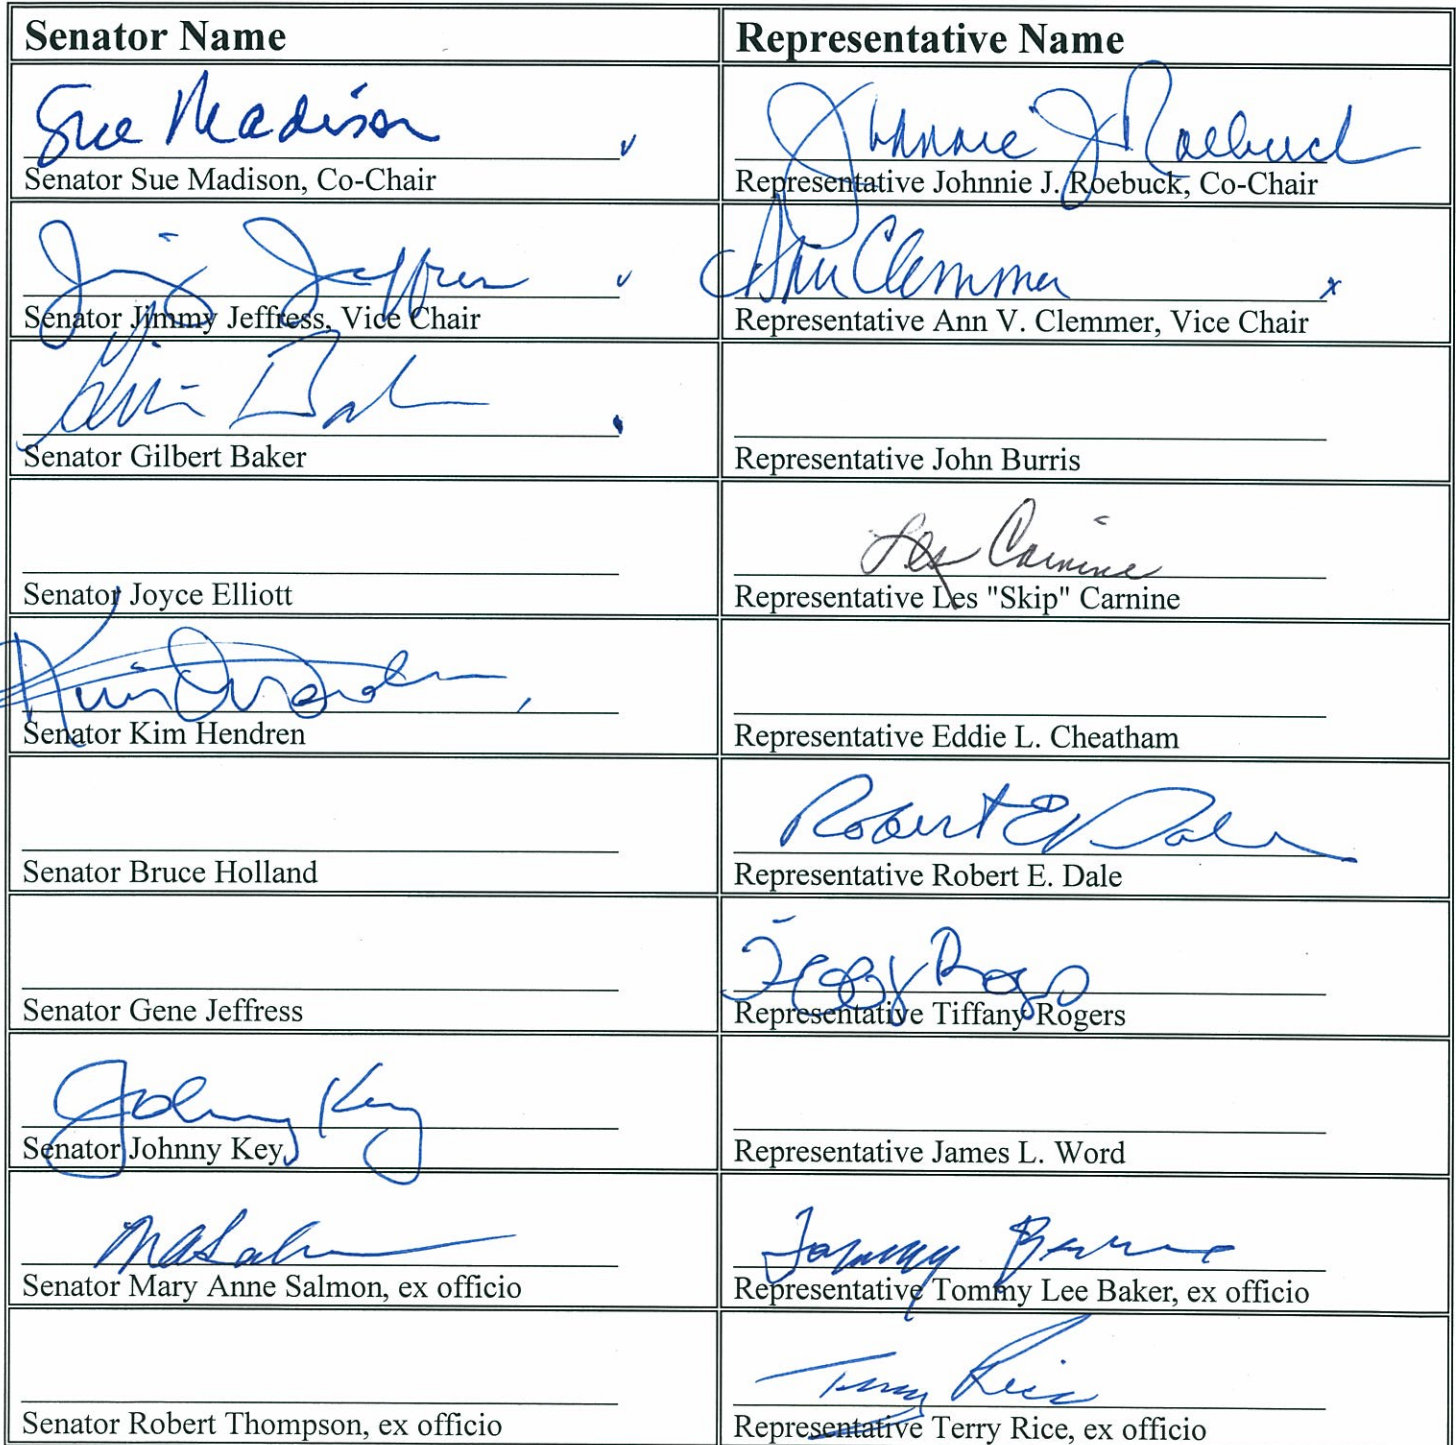 Senator Name
Representative Name
Sue Madison
Senator Sue Madison, Co-Chair
Johnnie J. Roebuck
Representative Johnnie J. Roebuck, Co-Chair
Jimmy Jeffress
Senator Jimmy Jeffress, Vice Chair
Ann Clemmer x
Representative Ann V. Clemmer, Vice Chair
Senator Gilbert Baker
Representative John Burris
Senator Joyce Elliott
Les Carnine
Representative Les "Skip" Carnine
Kim Hendren
Senator Kim Hendren
Representative Eddie L. Cheatham
Senator Bruce Holland
Robert E Dale
Representative Robert E. Dale
Senator Gene Jeffress
Representative Tiffany Rogers
Johnny Key
Senator Johnny Key
Representative James L. Word
MASalmon
Senator Mary Anne Salmon, ex officio
Tommy Baker
Representative Tommy Lee Baker, ex officio
Senator Robert Thompson, ex officio
Terry Rice
Representative Terry Rice, ex officio